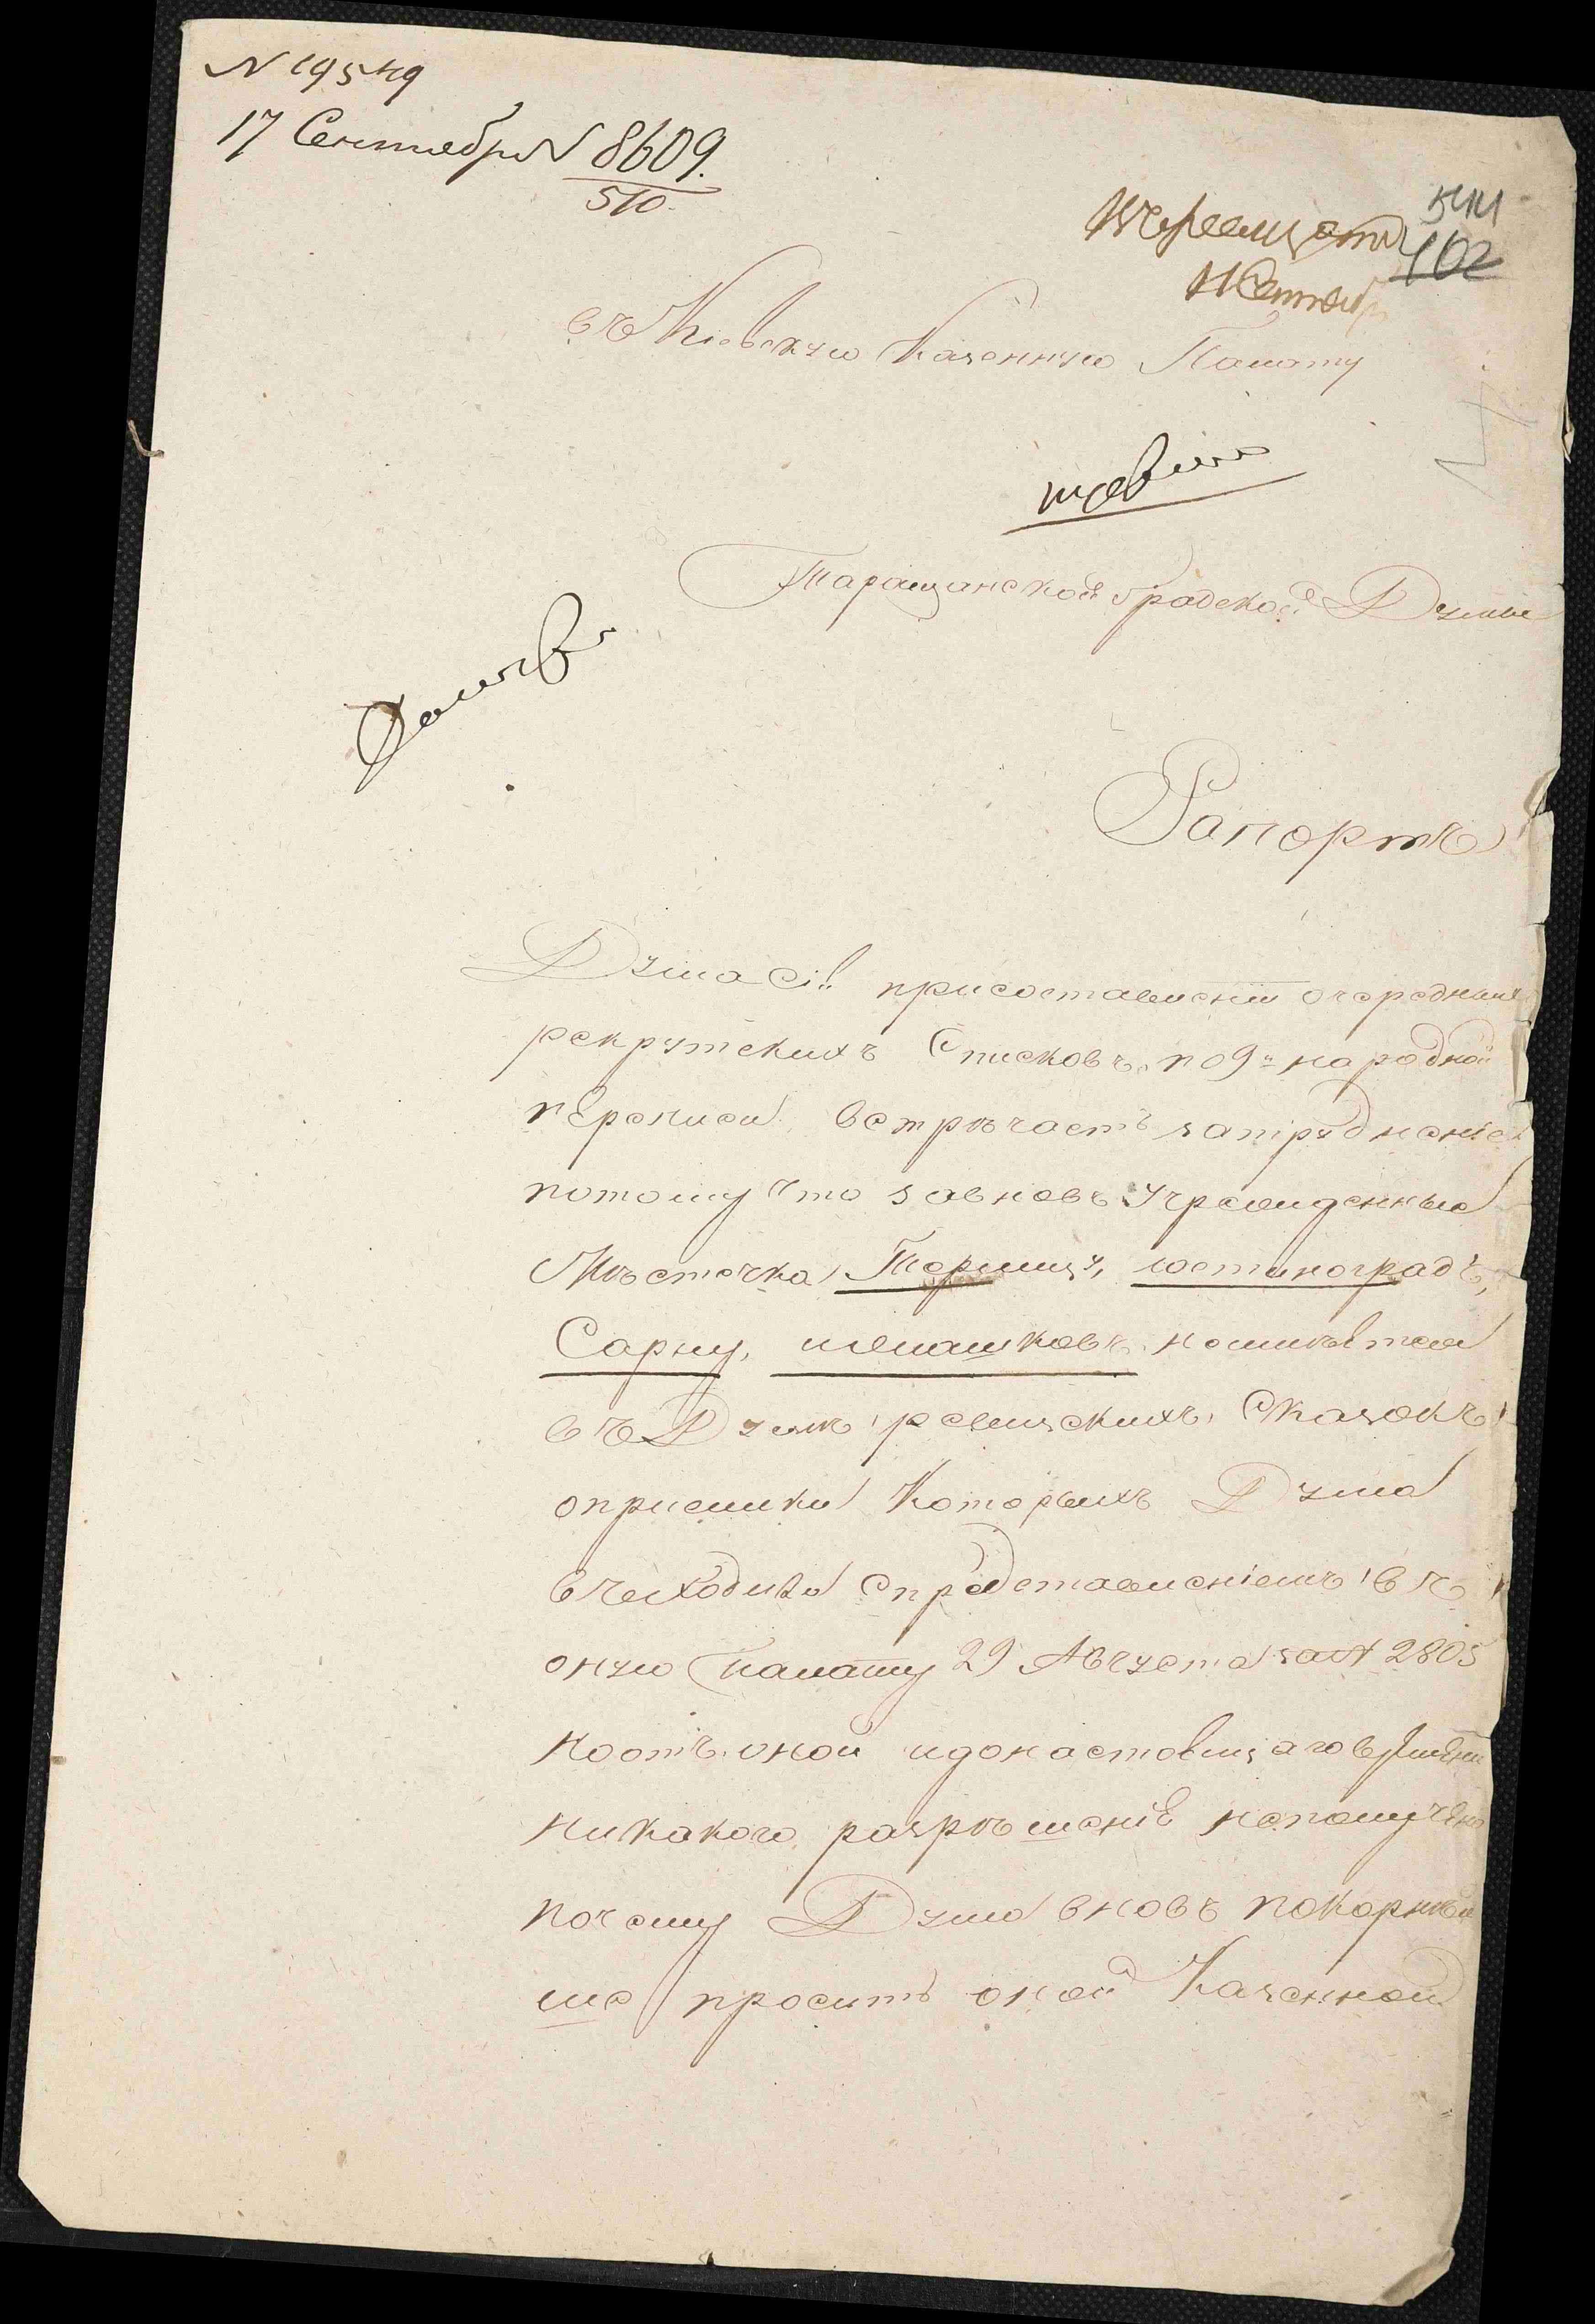 N 19549
17 Сентября N 8609.
510.
544
402
въ Кіевскую Казенную Палату
Таращанской градской Думы
Рапортъ
Дума Сія присоставленіи очередныхъ
рекрутскихъ Списковъ по 9й народной
переписи встрѣчаетъ затрудненіе
потому что завновь Учрежденныя
Мѣстечка Терлицу, юстиноградъ,
Сарну, иленашковъ, неимѣется
въ Думѣ ревизскихъ Сказокъ
оприсылки Которыхъ Дума
въходила Спредставленіемъ въ
оную палату 29 Августа за N 2805
Ноотъ оной идонастоящаго времени
никакого разрѣшенія неполучено
почему Дума вновь покорнѣй
ше проситъ оной Казенной